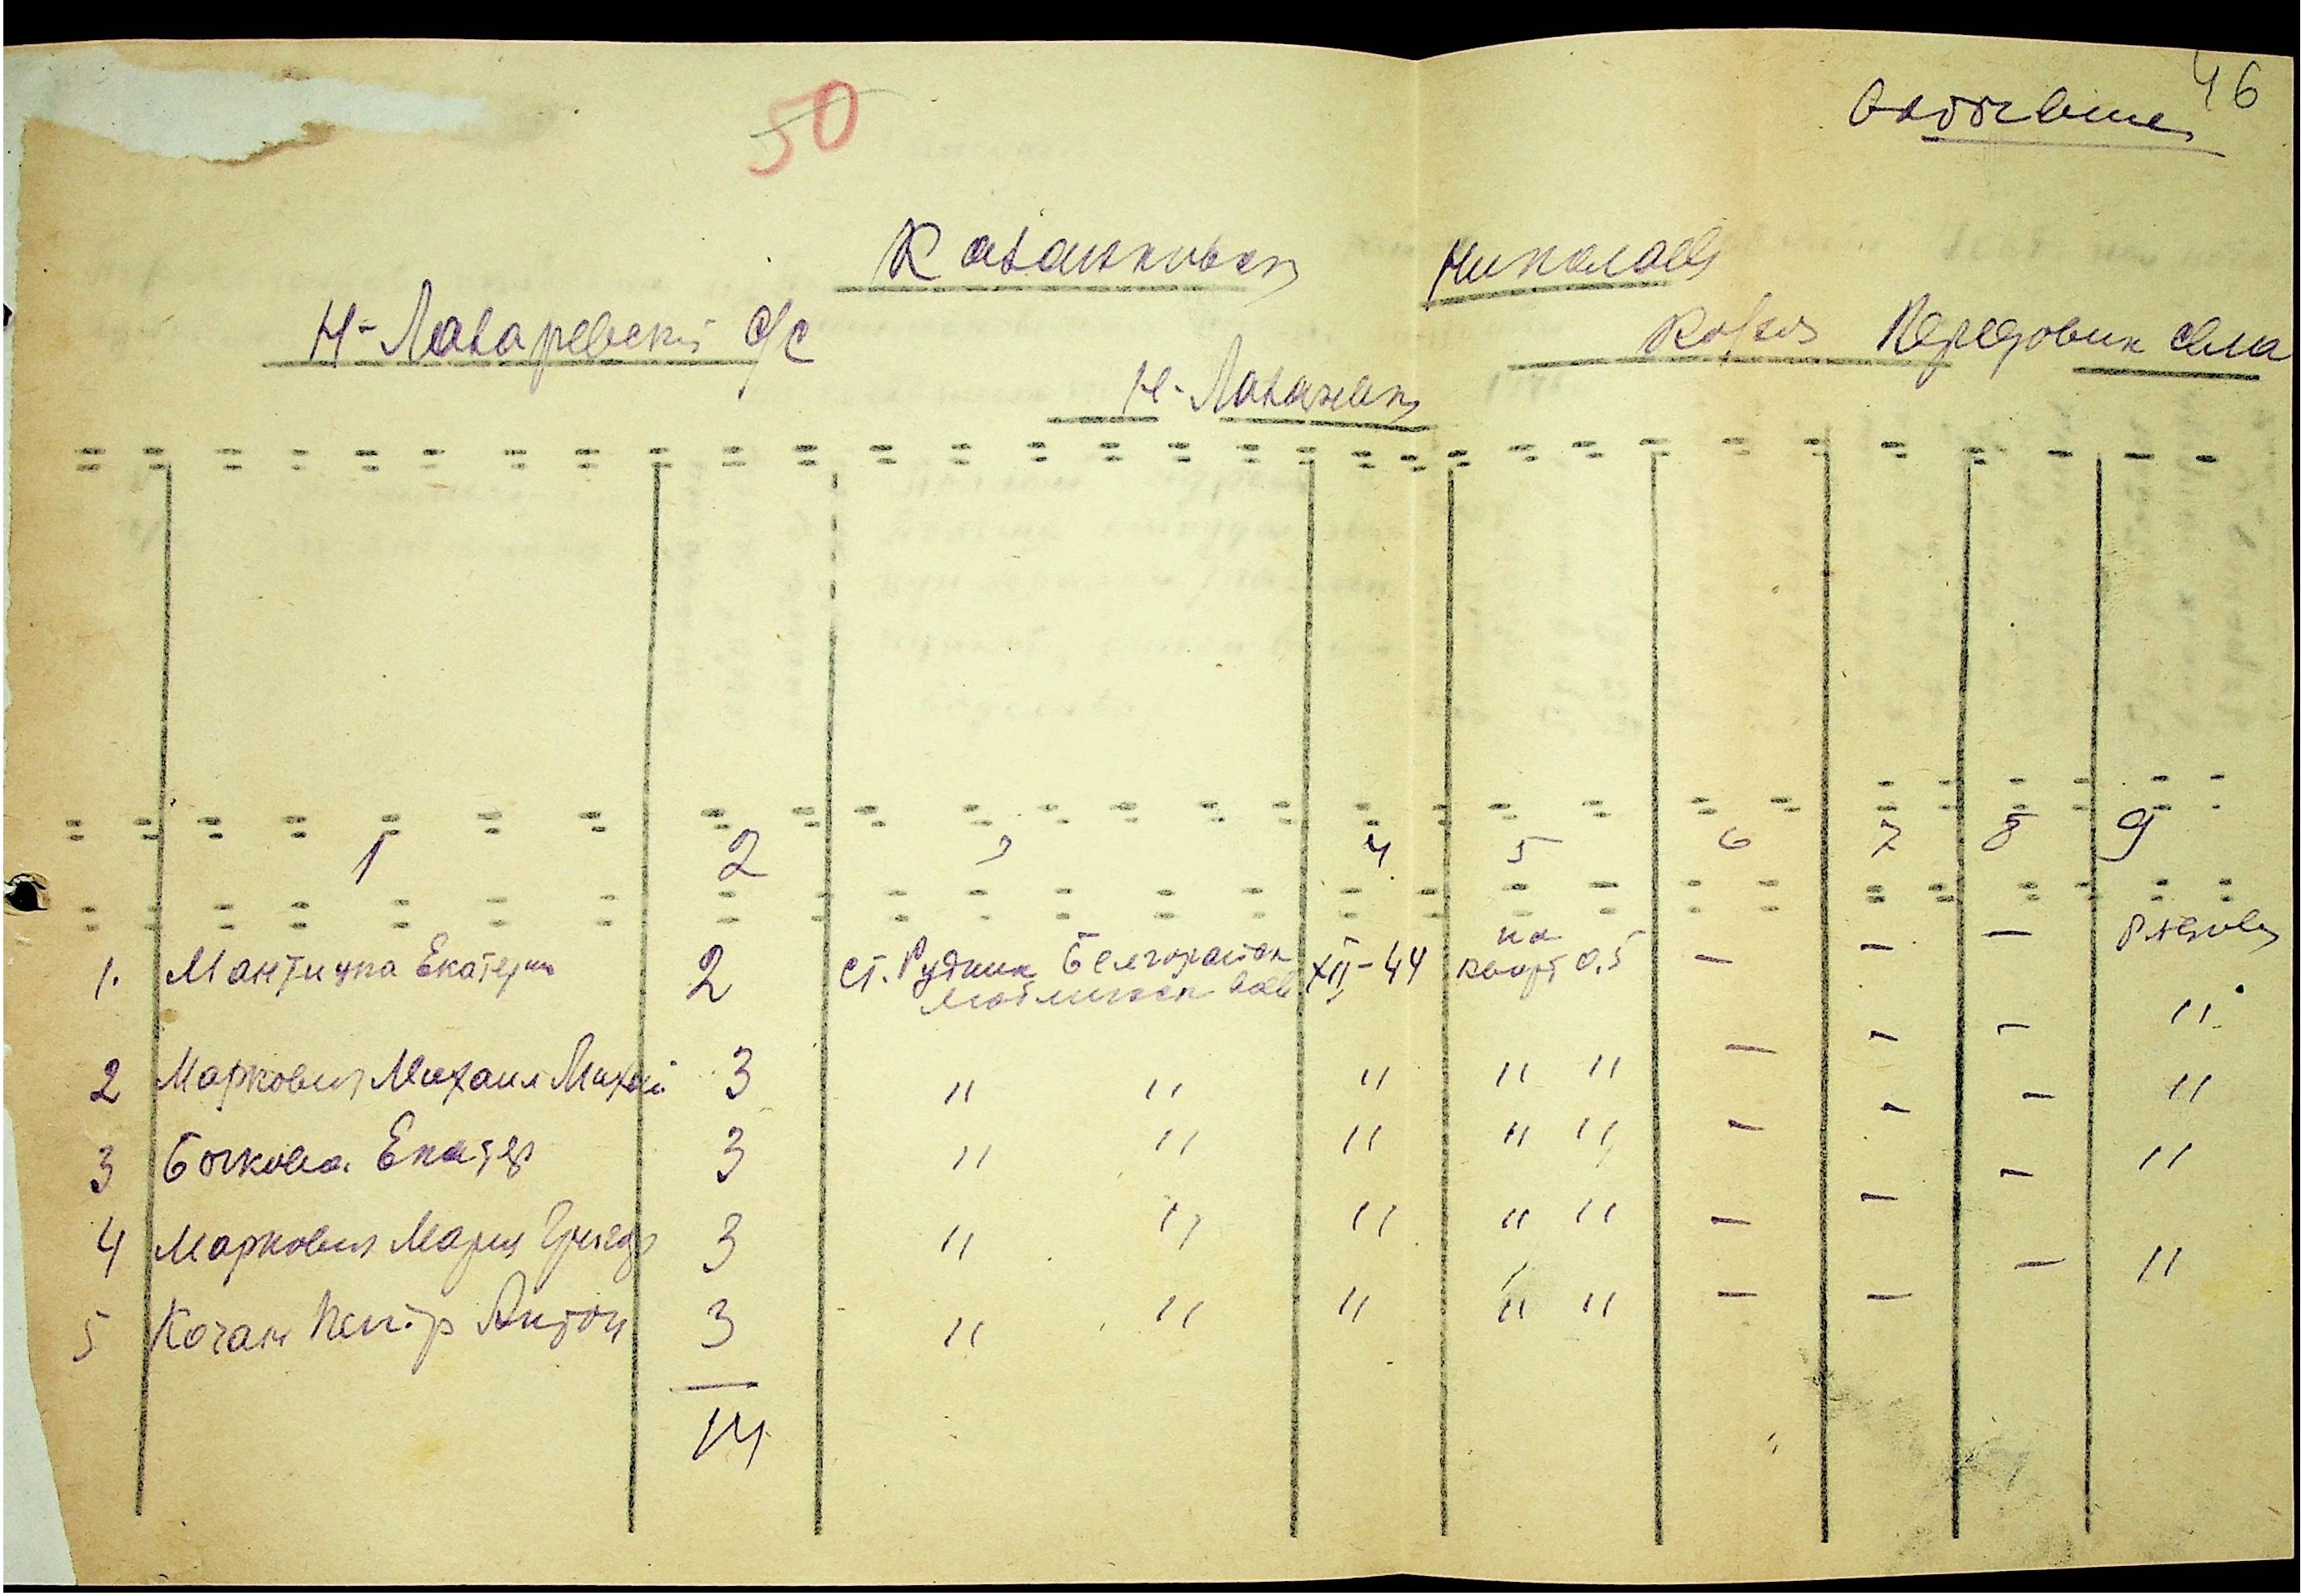 46
50
Казанковск Николаев
Н-Лазаревский с/с Колхоз Передовик села
Н-Лазаревк
1 2 3 4 5 6 7 8 9
1. Мантичка Екатерин 2 ст. Рудник Белгорайск XII-44 на кварт 0,5 — — — Рядовой
Люблинск вое
2 Маркович Михаил Михай 3 " " " " " — — — "
3 Бочкова Екатер 3 " " " " " — — — "
4 Маркович Мария Григор 3 " " " " " — — — "
5 Кочан Петр Антон 3 " " " " " — — — "
14